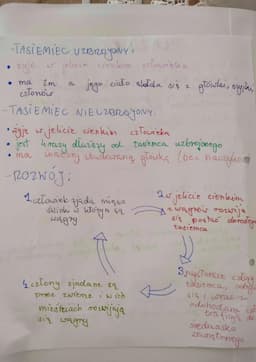 -TASIEMIEC UZBROJONY:
• żyje w jelicie cienkim człowieka
• ma 2m a jego ciało składa się z główki, szyjki,
członów
-TASIEMIEC NIEUZBROJONY:
• żyje w jelicie cienkim człowieka
• jest 4 razy dłuższy od tasiemca uzbrojonego
• ma inaczej zbudowaną główkę (bez haczyków
-ROZWÓJ:
1. człowiek zjada mięso
w którym są
wągry
2. w jelicie cienkim
z wągrów rozwija
się postać dorosłego
tasiemca
3. człony
tasiemca,
się i wraz z
do
środowiska
zewnętrznego
4. człony zjadane są
przez zwierzę i w ich
mięśniach rozwijają
się wągry